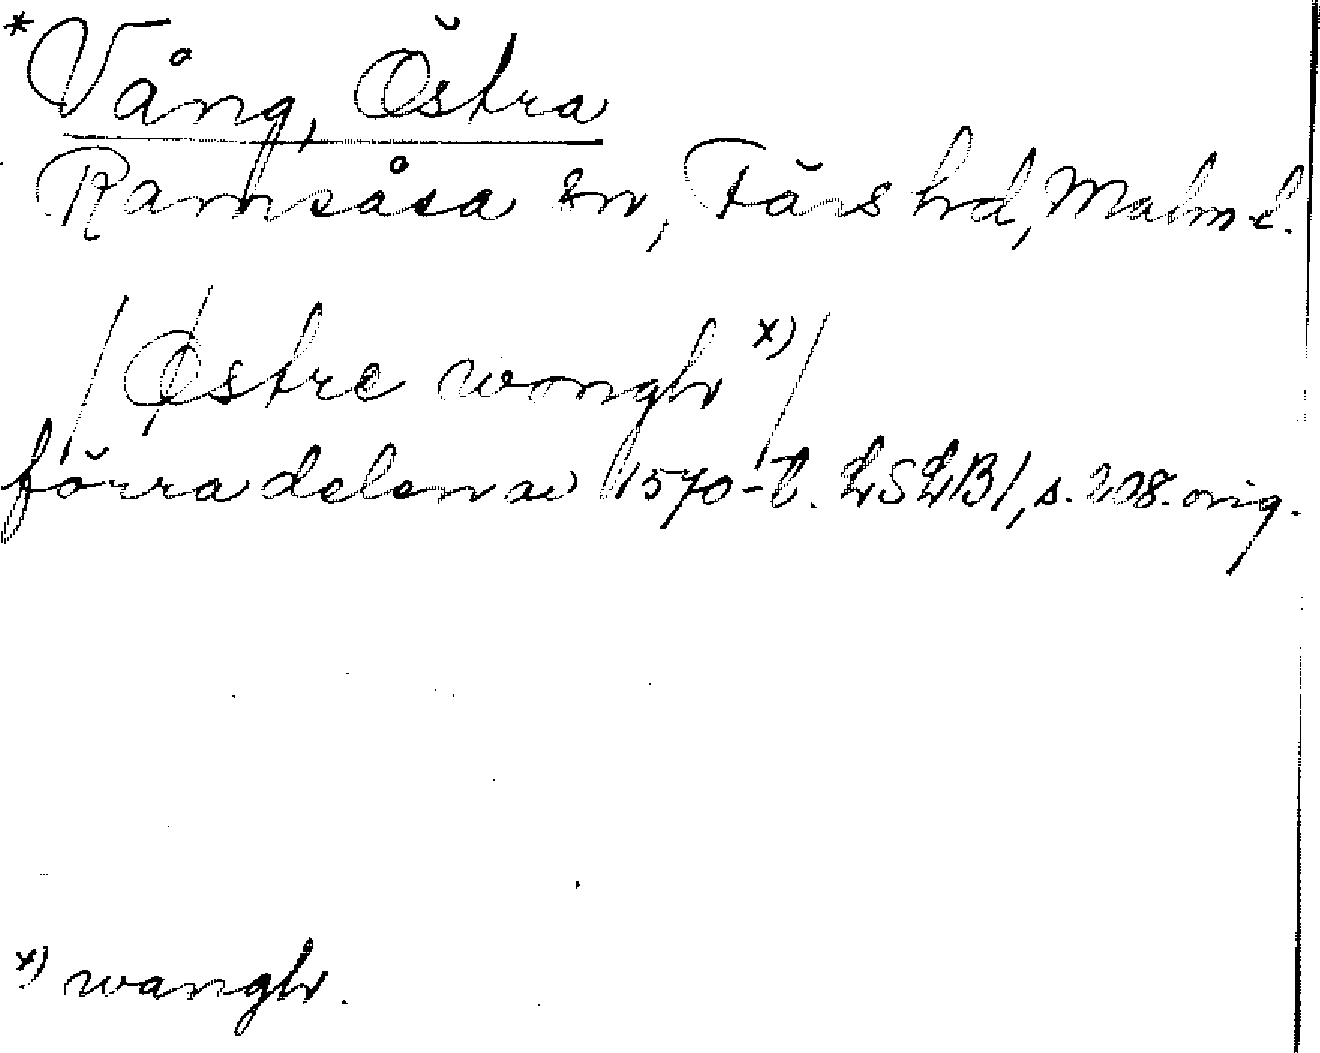 *Vång, Östra
Ramsåsa sn, Färs hd, Malm. l.
/Østre wongh x)/
förra delen av 1570-t. LSLB1, s. 208. orig.
x) wangh.